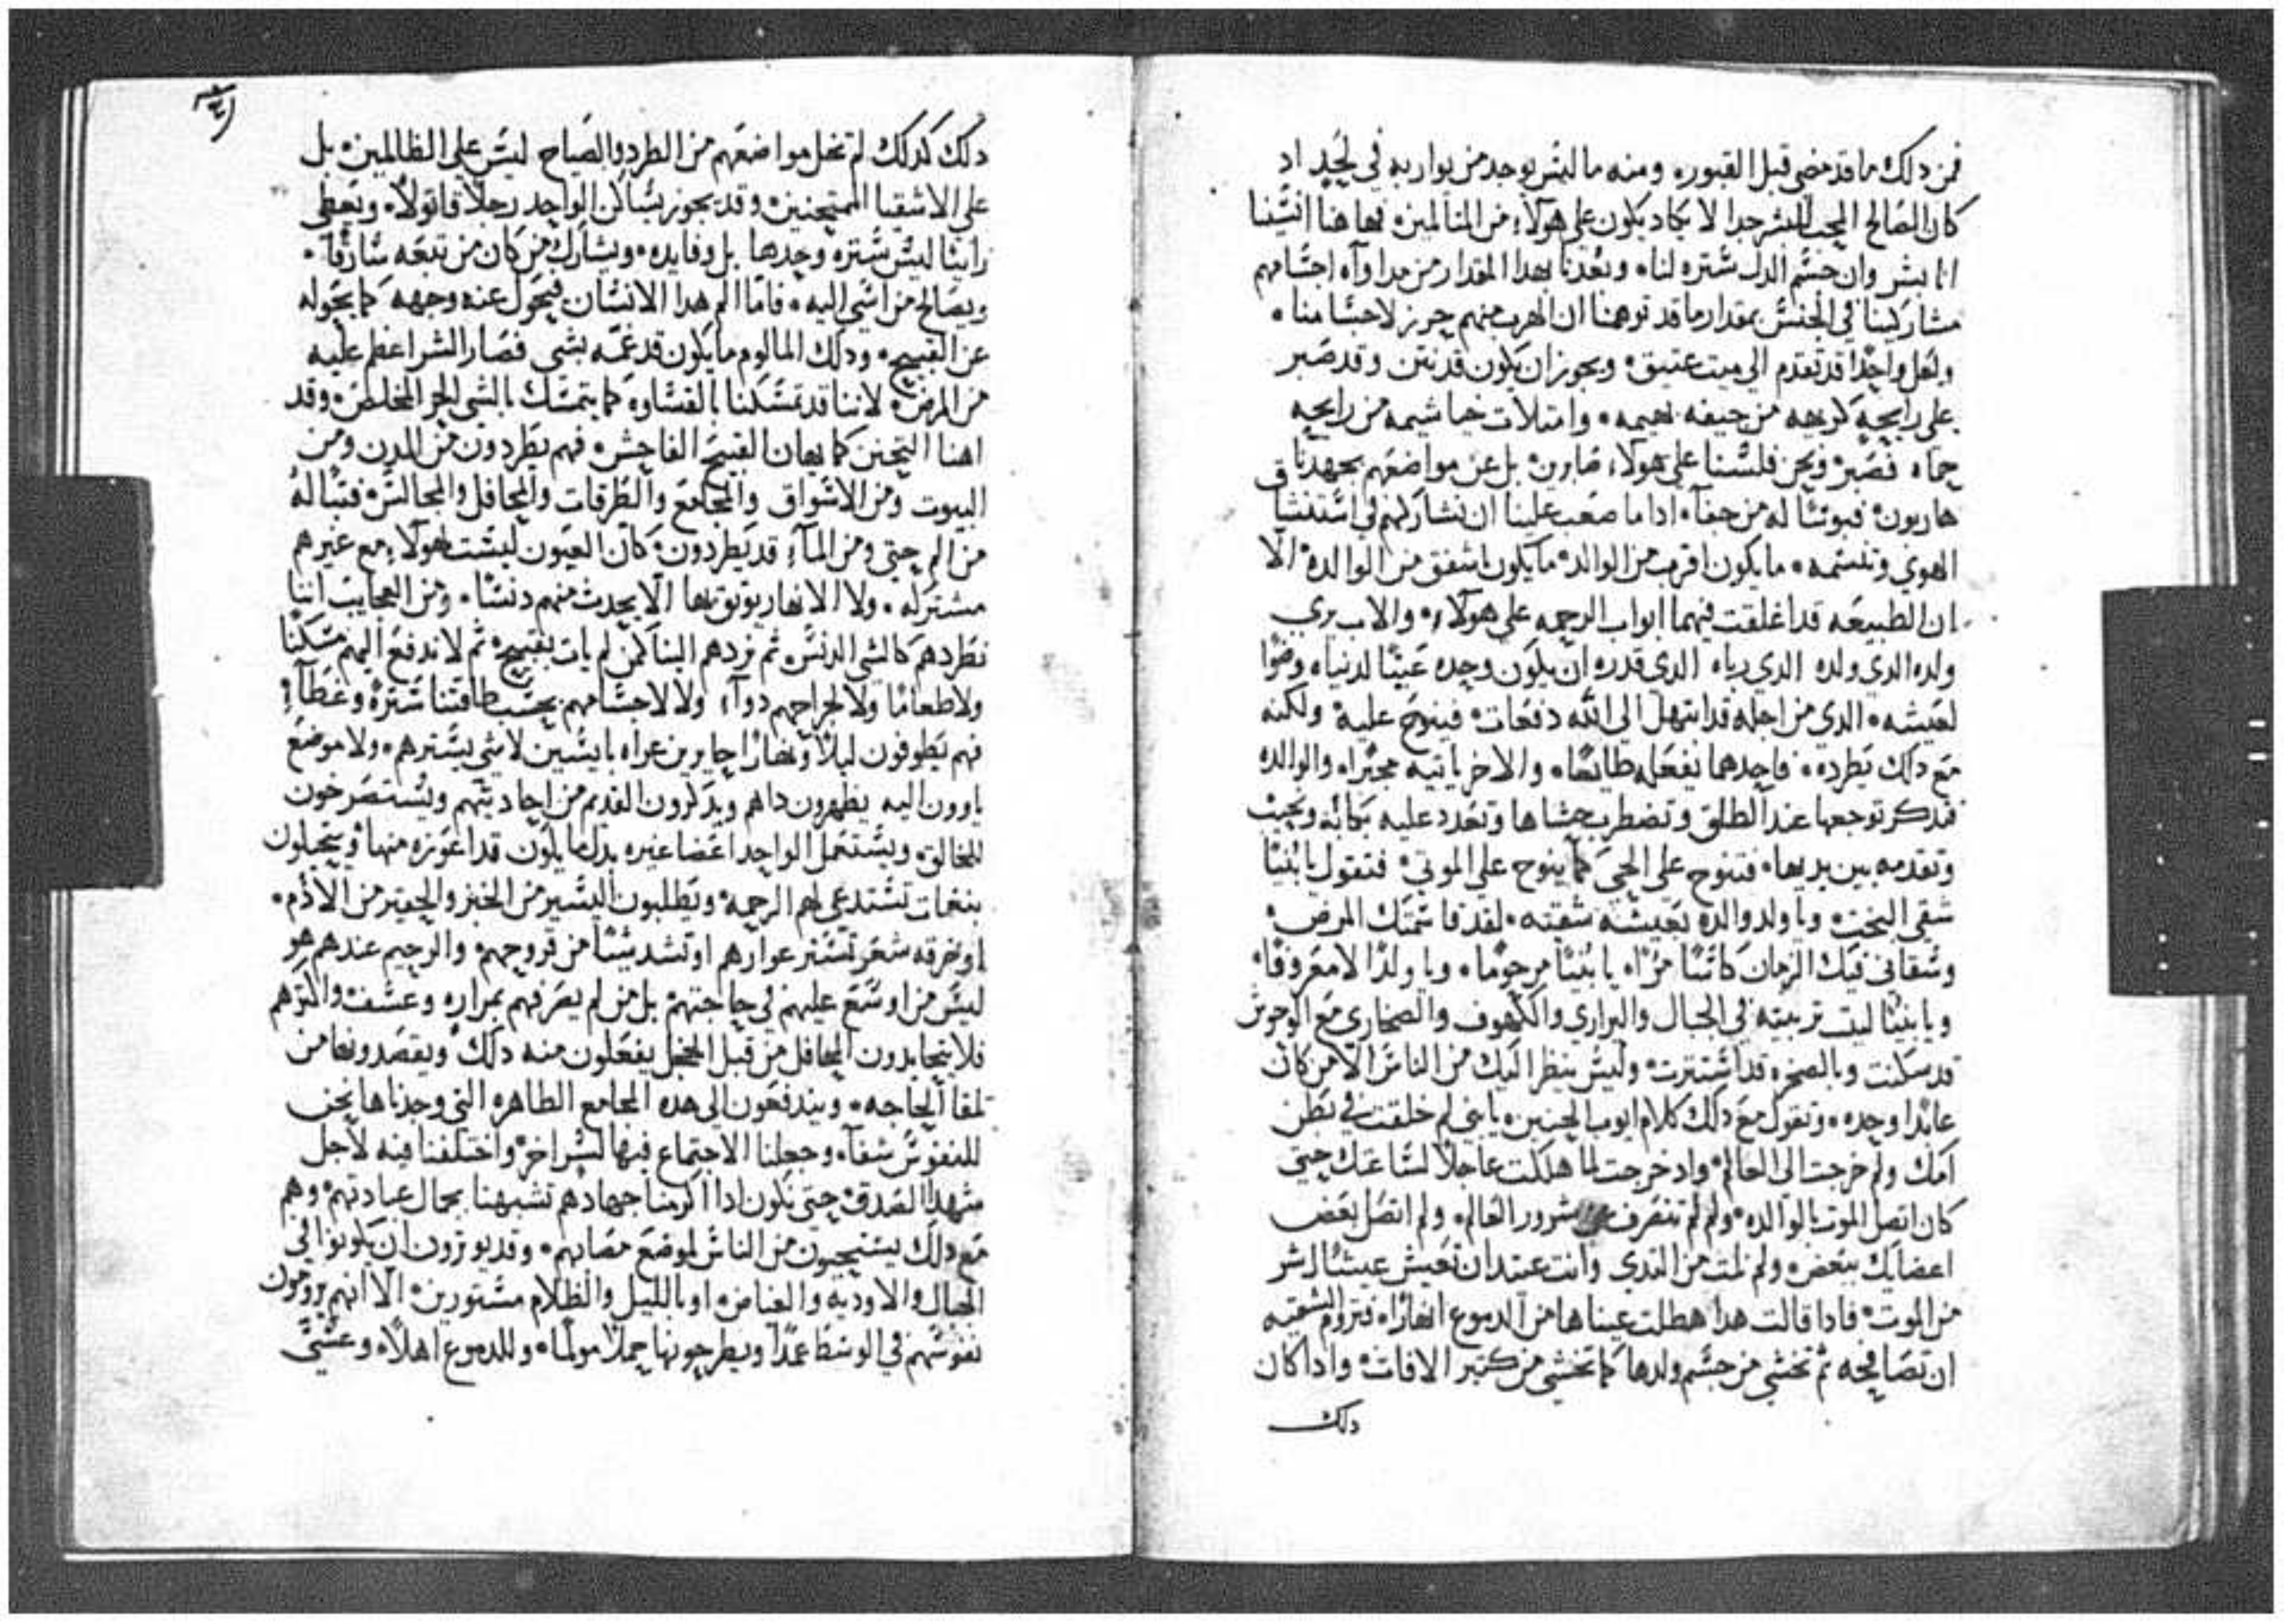 فمن دلك ما قد مضي قبل القبور، ومنه ما ليس يوجد من يواريه في لحد اد
كان الصالح المحب للبشر جدا لا يكاد يكون علي هولاء من المتالمين، فها هنا انسينا
اننا بشر وان جسم الدل سترة لنا، وبعدنا بهدا المقدار من مداواه اجسامهم
مشاركينا في الجنس بمقدار ما قد توهمنا ان الهرب منهم حرز لاجسامنا،
ولعل واحدا قد تقدم الي ميت عتيق، ويجوز ان يكون قد نتن وقد صبر
علي رايحه كريهه من جيفه بهيمه، وامتلات خياشيمه من رايحه
حماه فصبر، ونحن فلسنا علي هولاء صابرين بل عن مواضعهم بجهدنا
هاربون، فبوسا له من جفاء، ادا ما صعب علينا ان نشاركهم في استنشاق
الهوي وتنسمه، ما يكون اقرب من الوالد، ما يكون اشفق من الوالده، الا
ان الطبيعه قد اغلقت فيهما ابواب الرحمه علي هولاء، والاب يري
ولده الدي ولده الدي رباه الدي قدره ان يكون وحده عينا لدنياه وضوا
لعيشه، الدي من اجله قد ابتهل الي الله دفعات، فينوح عليه، ولكنه
مع دلك يطرده، فاحدهما يفعله طايعا، والاخر ياتيه مجبرا، والوالده
فتدكر توجعها عند الطلق وتضطرب حشاها وتعدد عليه بكابه ونحيب
وتقدمه بين يديها، فتنوح علي الحي كما ينوح علي الموتي، فتقول يا بنيا
شقي البخت، ويا ولد والده بعيشه شقيه، لقد قاسمتك المرض،
وسقاني فيك الزمان كاسا مرا، يا بنيا مرحوما، ويا ولدا لا معروفا،
ويا بنيا ليت تربيته في الجبال والبراري والكهوف والصحاري مع الوحوش
قد سكنت وبالصخره قد استترت، وليس ينظر اليك من الناس الا من كان
عابدا وحده، وتقول مع دلك كلام ايوب الحنين، يا بني لم خلقت في بطن
امك ولم خرجت الي العالم، واد خرجت لما هلكت عاجلا لساعتك حتي
كان اتصل الموت بالوالده، ولم لم تنصرف شرور العالم، ولم اتصل بعض
اعضايك ببعض، ولم نلت من الثدي وانت عتيد ان تعيش عيشا اشر
من الموت، فادا قالت هدا هطلت عيناها من الدموع انهارا، فتروم الشقيه
ان تصافحه ثم تخشي من جسم ولدها كما تخشي من كثير الافات، وادا كان
دلك
دلك كدلك لم تخل مواضعهم من الطرد والصياح ليس علي الظالمين، بل
علي الاشقيا الممتحنين، وقد يجوز يساكن الواحد رجلا قاتولا، ويعطي
زانيا ليس ستره وحدها بل وفايده، ويشارك من كان من تبعه سارقا،
ويصالح من اسي اليه، فاما الم هدا الانسان فيحول عنه وجهه كما يحوله
عن القبيح، ودلك المالوم ما يكون قد غمه بشي فصار الشر اعظم عليه
من المرض، لاننا قد تمسكنا بالقساوه كما يتمسك بالشي الحر المخلص، وقد
اهنا التحنن كما يهان القبيح الفاحش، فهم يطردون من المدن ومن
البيوت ومن الاسواق والمجامع والطرقات والمحافل والمجالس، فتبا له
من الم حتي ومن المآء قد يطردون، كان العيون ليست لهولاء مع غيرهم
مشتركه، ولا الانهار يوثق بها الا يحدث منهم دنسا، ومن العجايب اننا
نطردهم كالشي الدنس، ثم نردهم الينا كمن لم يات بقبيح، ثم لا ندفع اليهم مسكنا
ولا طعاما ولا لجراحهم دوآء ولا لاجسامهم بحسب طاقتنا ستره وغطآء
فهم يطوفون ليلا ونهارا حايرين عراه بايسين لا شي يسترهم، ولا موضع
ياوون اليه يظهرون داهم ويدكرون القديم من احاديثهم ويستصرخون
للخالق، ويستعمل الواحد اعضا غيره بدل ما يكون قد اعوزه منها، ويتحيلون
بنغمات تستدعي لهم الرحمه، ويطلبون اليسير من الخبز والحقير من الادم،
او خرقه شعر تستر عوارهم او تشد شيا من قروحهم، والرحيم عندهم هو
ليس من اوسع عليهم في حاجتهم، بل من لم يصرفهم بمراره وعسف، واكثرهم
فلا يتحايدون المحافل من قبل الخجل يفعلون منه دلك، ويقصدونها من
تلقا الحاجه، ويندفعون الي هده المجامع الطاهره التي وجدناها نحن
للنفوس شفآء، وجعلنا الاجتماع فيها لسر اخر، واختلفنا فيه لاجل
شهدا الصدق، حتي يكون ادا اكرمنا جهادهم تشبهنا بجمال عبادتهم، وهم
مع دلك يستحيون من الناس لموضع مصابهم، وقد يوثرون ان يكونوا في
الجبال والاوديه والغياض، او بالليل والظلام مستورين، الا انهم يرومون
نفوسهم في الوسط عمدا ويطرحونها حملا مولما، وللدموع اهلا، وعسي